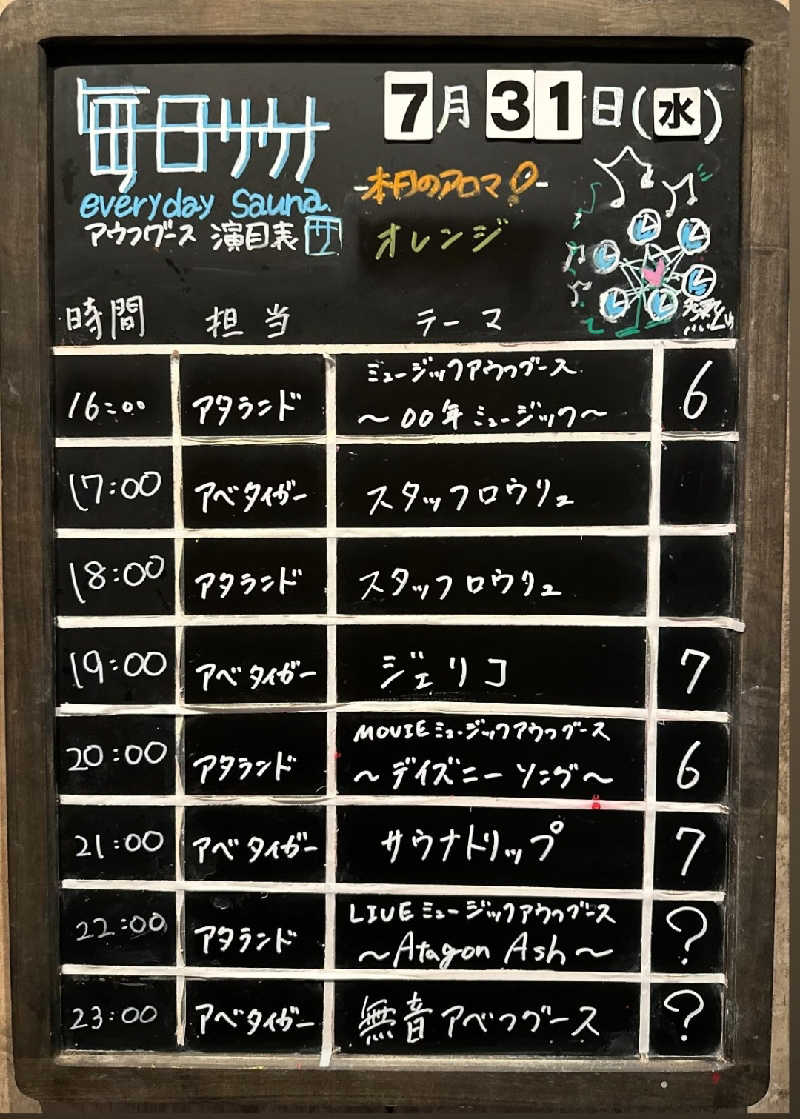 毎日サウナ
7月31日(水)
everyday Sauna.
-本日のアロマ!-
アウフグース 演目表 サ
オレンジ
時間 担当 テーマ 熱さ
16:00 アタランド ミュージックアウフグース 6
〜00年ミュージック〜
17:00 アベタイガー スタッフロウリュ
18:00 アタランド スタッフロウリュ
19:00 アベタイガー ジェリコ 7
20:00 アタランド MOVIEミュージックアウフグース 6
〜ディズニーソング〜
21:00 アベタイガー サウナトリップ 7
22:00 アタランド LIVEミュージックアウフグース ?
〜Atagon Ash〜
23:00 アベタイガー 無音アベフグース ?